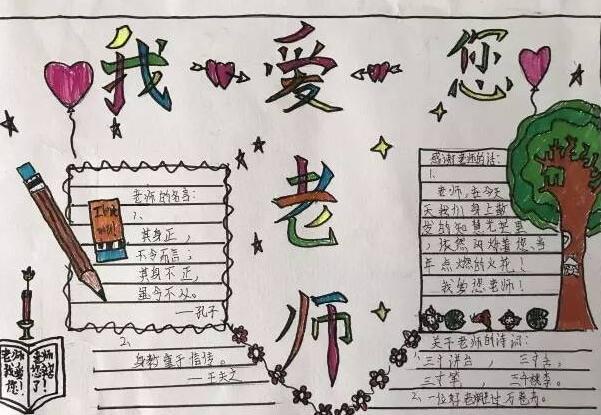 我 爱 您
老
师
老师的名言:
1、
其身正,
不令而言;
其身不正,
虽令不从。
——孔子
2、
身教重于言传。
——王夫之
感谢老师的诗:
1、
老师,在今天
我们身上散
发的智慧光芒里
,依然闪烁着您当
年点燃的火花!
我爱您老师!
关于老师的诗词:
1、三寸讲台, 三寸舌,
三寸笔, 三千桃李。
2、一位好老师胜过万卷书。
老师
我爱
您!
老师
您辛苦
了!